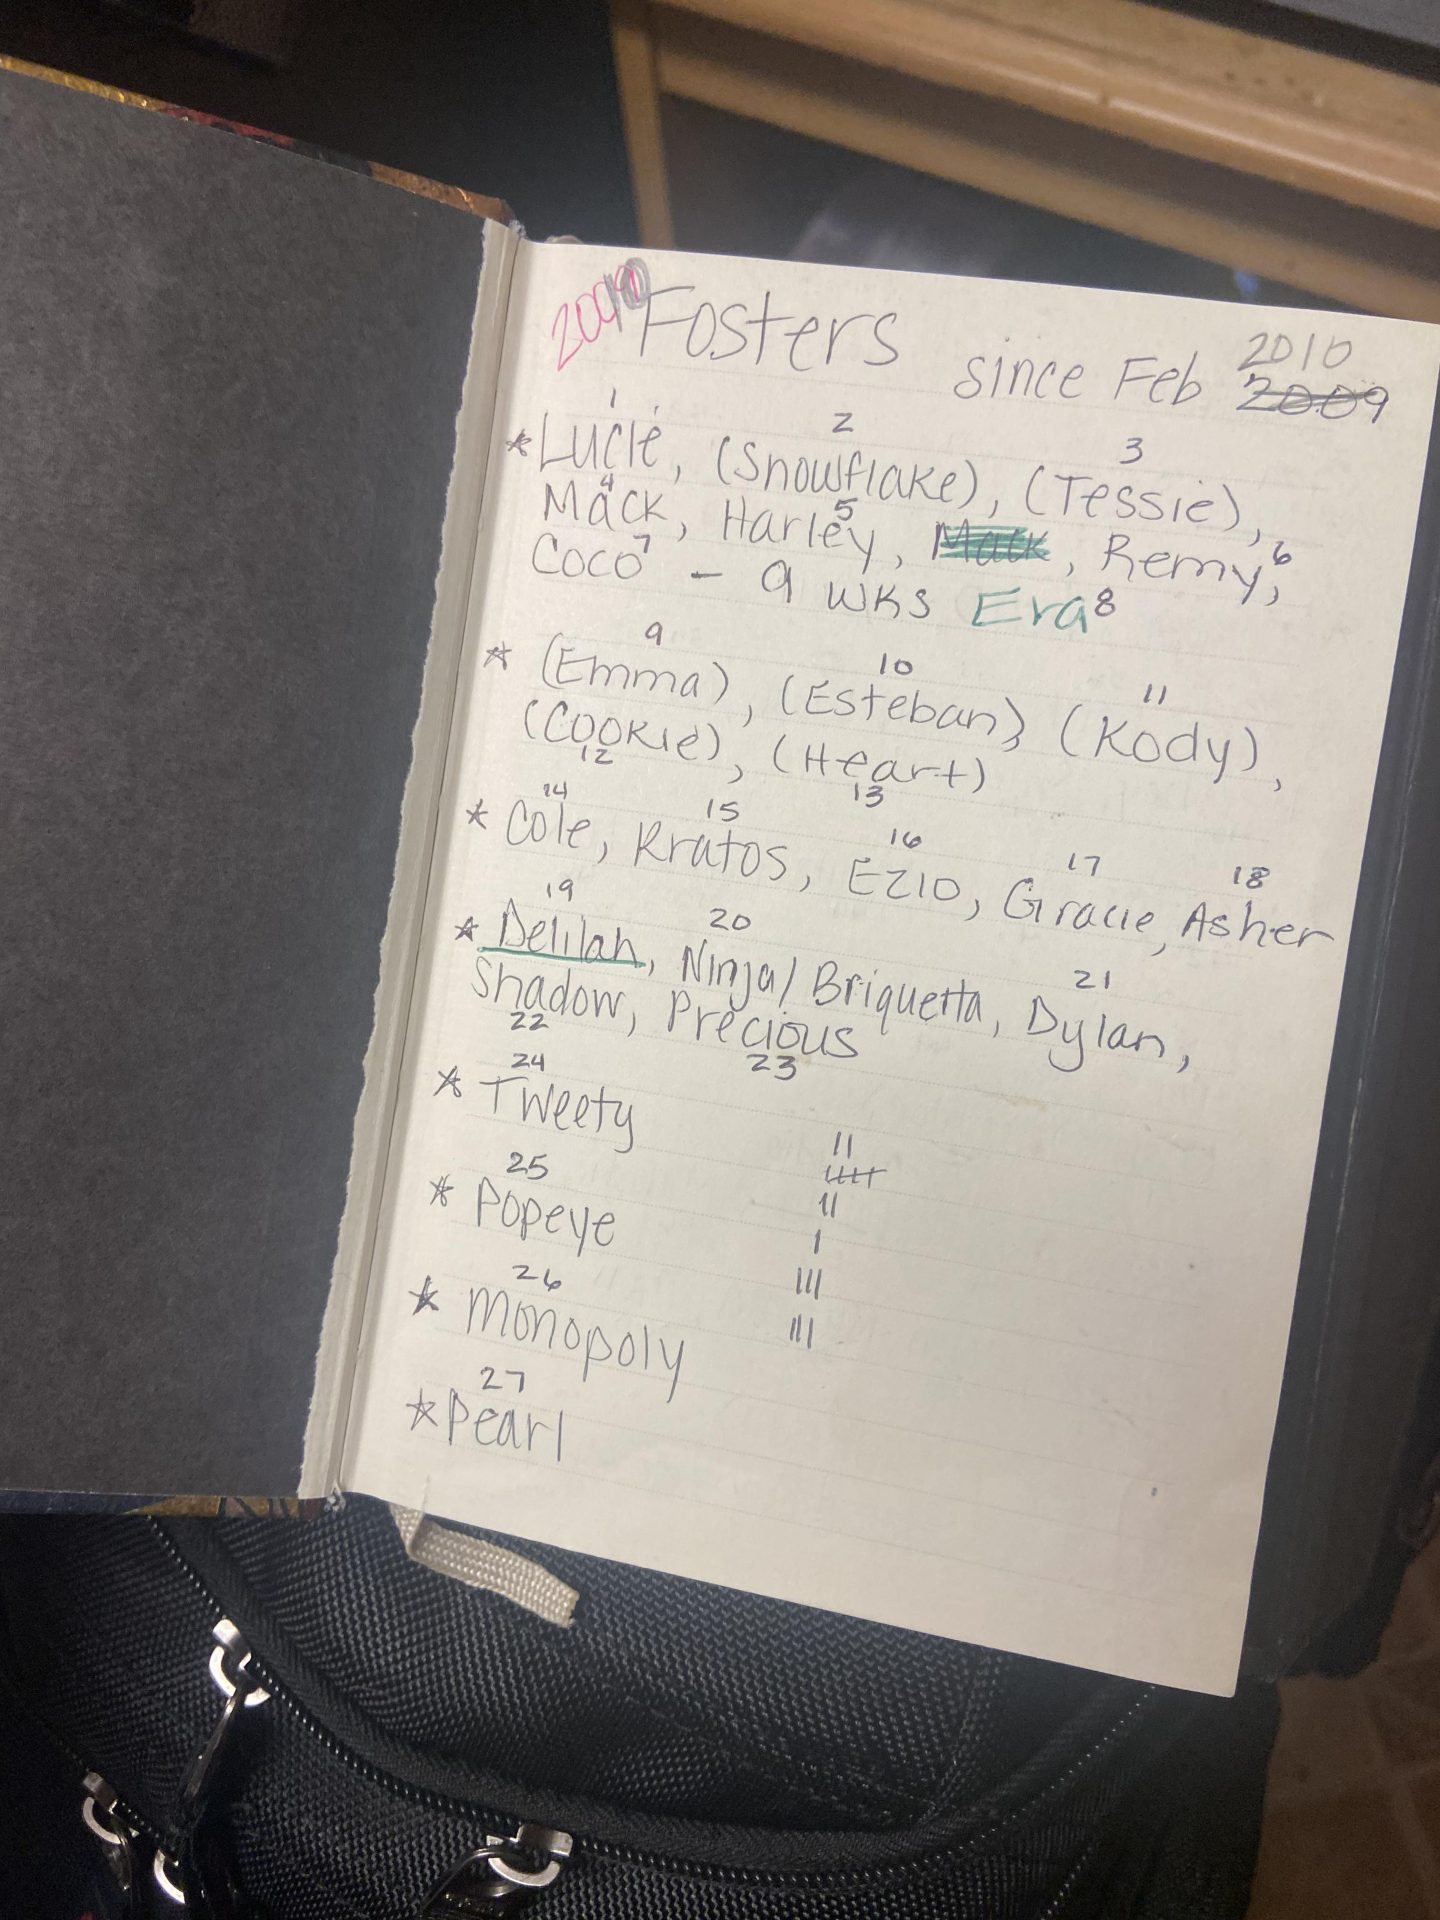 Fosters since Feb 2010
2009
1 2 3
* Lucie, (Snowflake), (Tessie),
4 5 6
Mack, Harley, Mack, Remy,
Coco 7 - 9 wks Era 8
9 10 11
* (Emma), (Esteban), (Kody),
(Cookie), (Heart)
12 13
14 15 16 17 18
* Cole, Kratos, Ezio, Gracie, Asher
19 20 21
* Delilah, Ninja/Briquetta, Dylan,
Shadow, Precious
22 23
24
* Tweety
25
* Popeye
26
* Monopoly
27
* Pearl